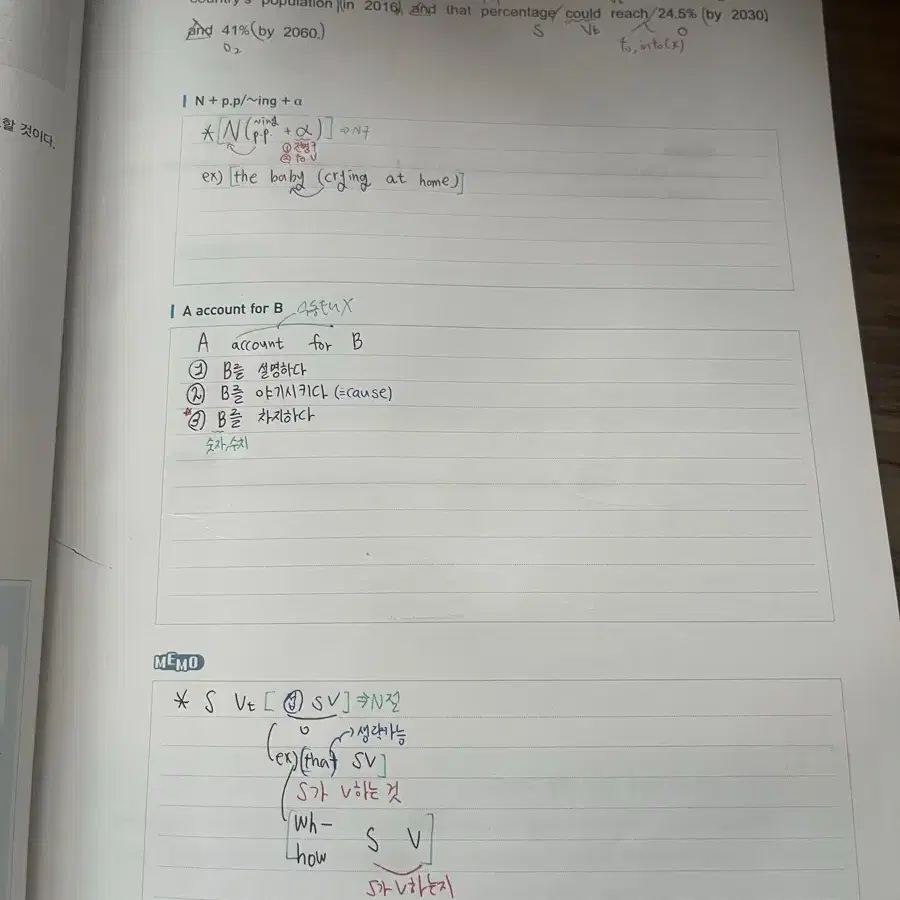 country's population (in 2016) and that percentage could reach 24.5% (by 2030)
S Vt O
to, into(x)
and 41% (by 2060.)
O₂
할 것이다.
N + p.p/~ing + α
*[N(~ing p.p. + α)] ⇒ N구
① 전명구
② to V
ex) [the baby (crying at home)]
A account for B 수동태 X
A account for B
① B를 설명하다
② B를 야기시키다 (=cause)
*③ B를 차지하다
숫자,수치
MEMO
* S Vt [ 접 SV ] ⇒ N절
O
생략가능
ex) (that SV]
S가 V하는 것
[Wh-
how S V]
S가 V하는지